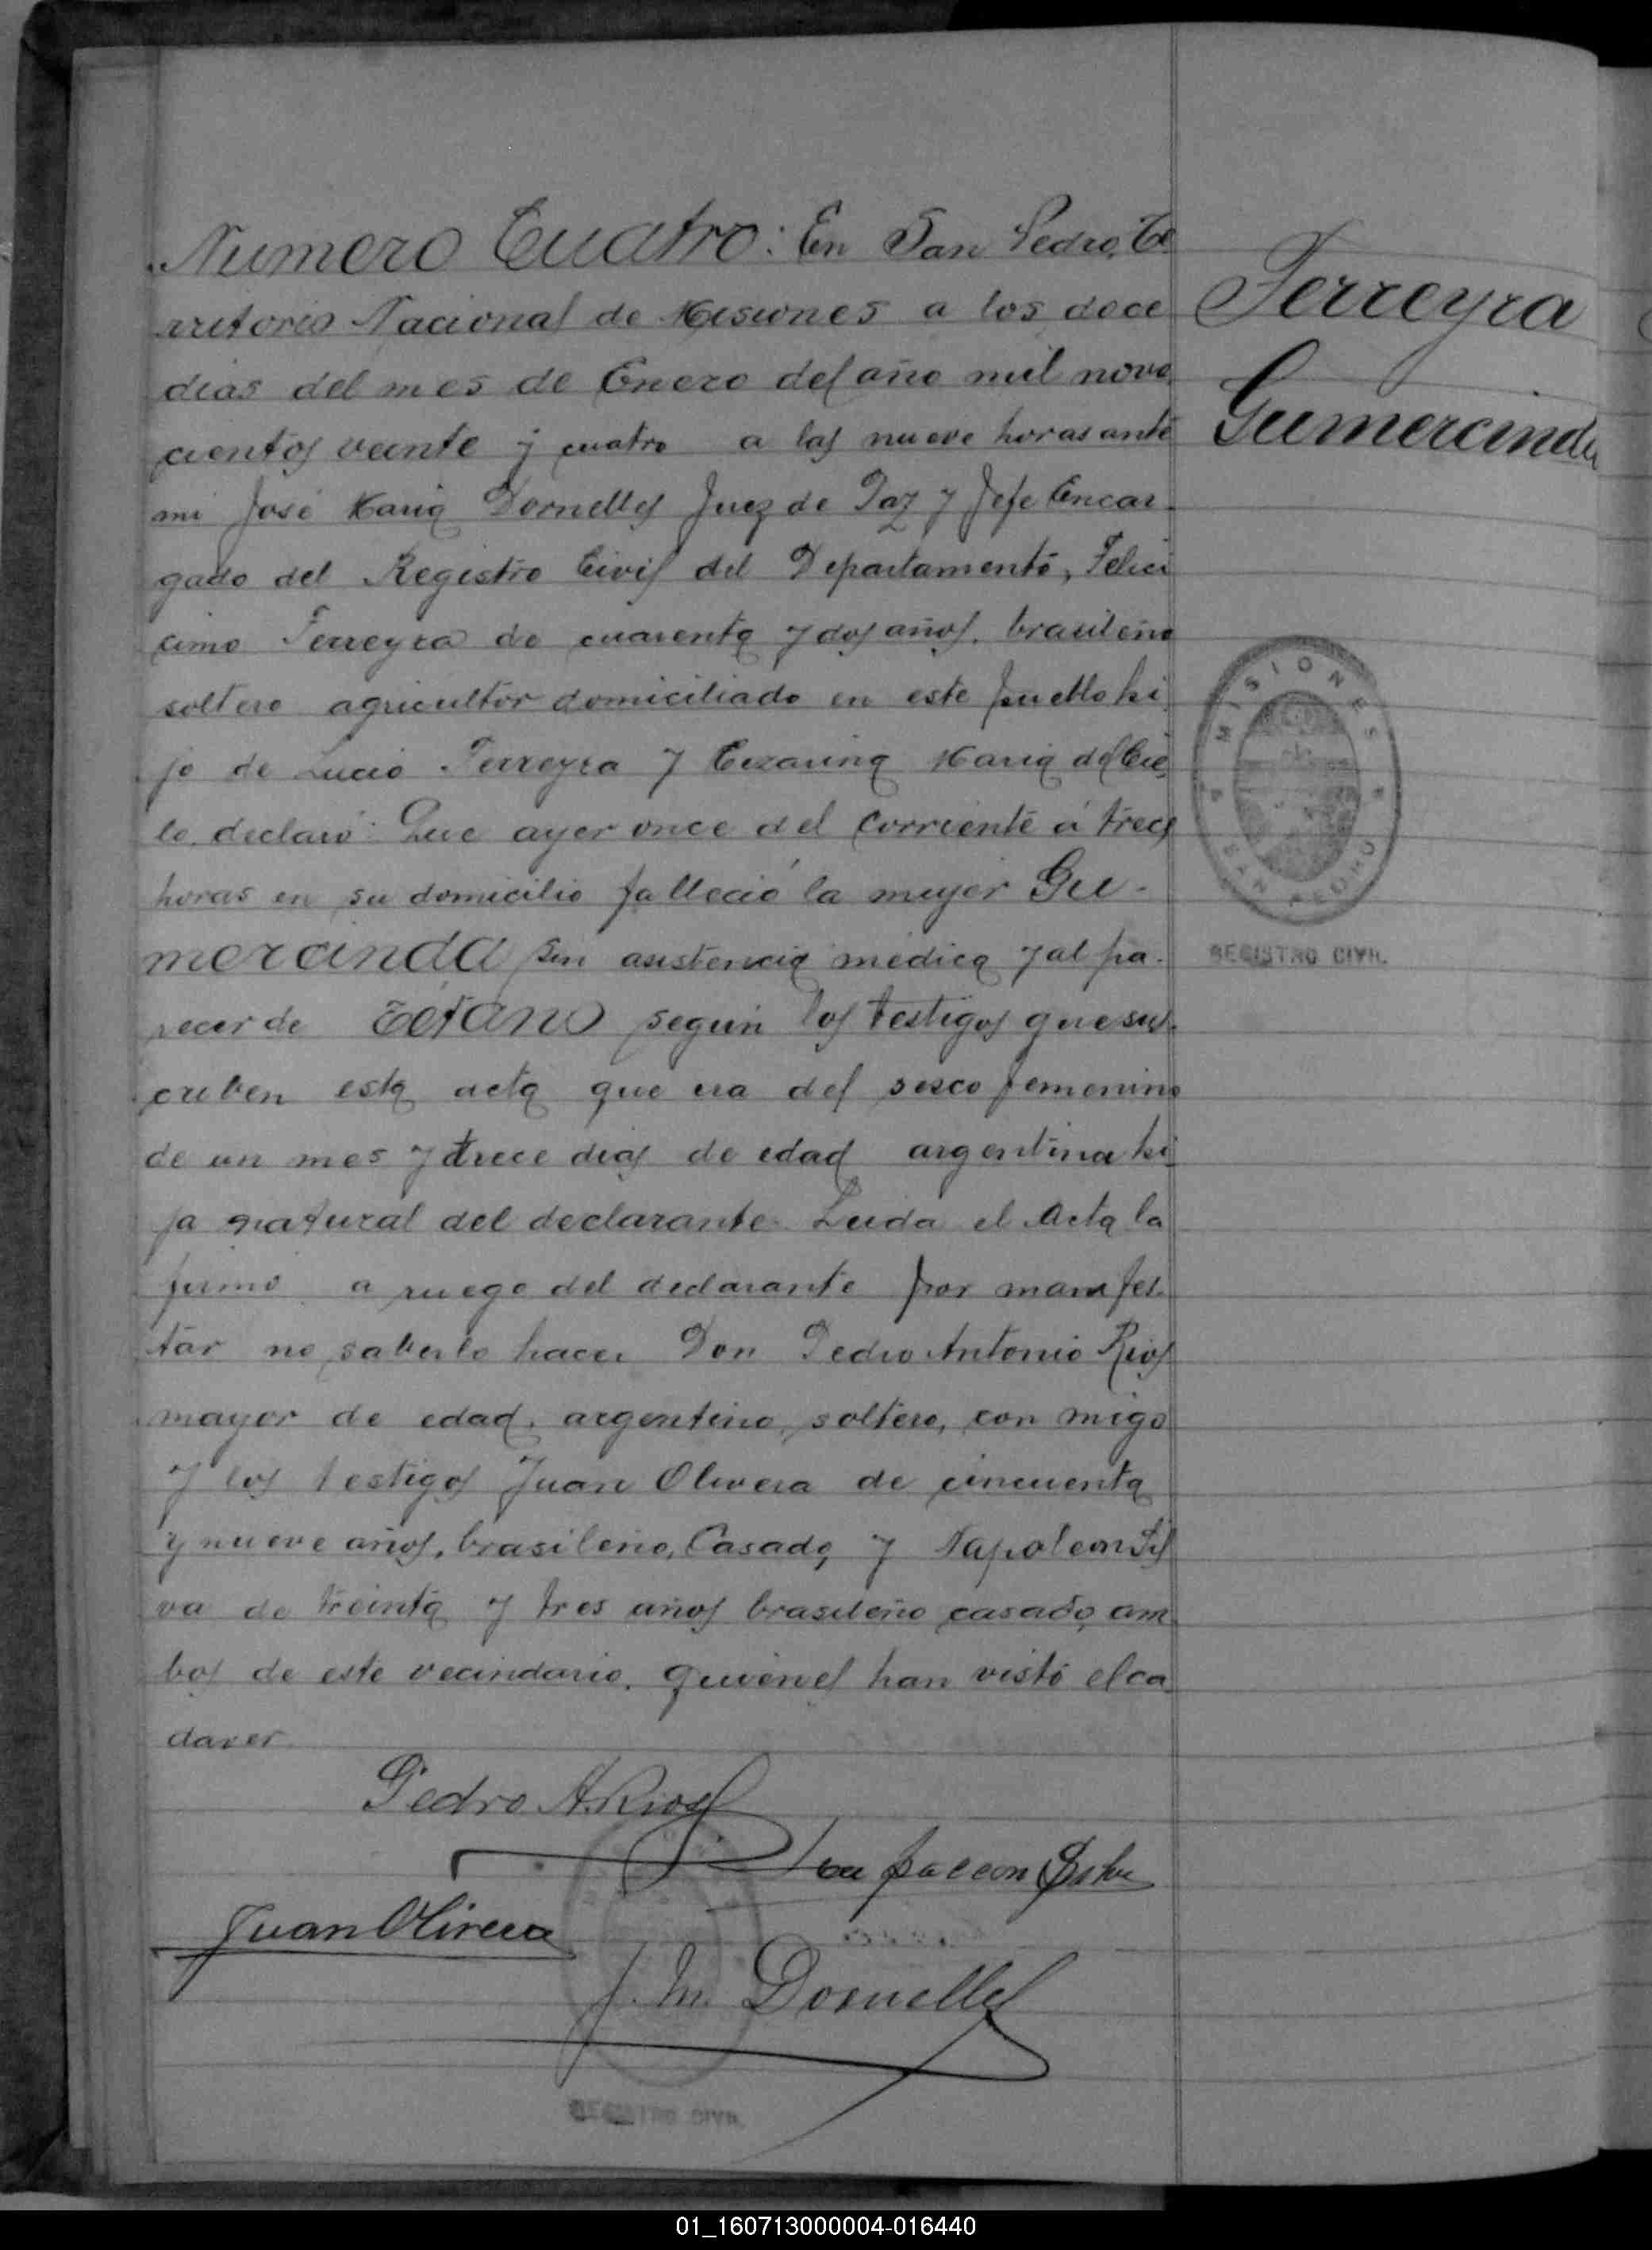 Numero Cuatro: En San Pedro, Te
rritorio Nacional de Misiones a los doce
dias del mes de Enero del año mil nove
cientos veinte y cuatro a las nueve horas ante
mi José Maria Dornelles Juez de Paz y Jefe Encar-
gado del Registro Civil del Departamento, Felici
cimo Ferreyra de cuarenta y dos años, brasileño
soltero agricultor domiciliado en este pueblo hi
jo de Lucio Ferreyra y Cezarina Maria del Cie
lo, declaró: Que ayer once del corriente á trece
horas en su domicilio falleció la mujer Gu-
mercinda sin asistencia médica y al pa-
recer de Tétano según los testigos que sus-
criben esta acta que era del sexo femenino
de un mes y trece dias de edad argentina hi
ja natural del declarante. Leida el Acta la
firmó a ruego del declarante por manifes-
tar no saberlo hacer Don Pedro Antonio Rios
mayor de edad, argentino, soltero, con migo
y los testigos Juan Olivera de cincuenta
y nueve años, brasileño, Casado, y Napoleon Sil
va de treinta y tres años brasileño casado, am
bos de este vecindario, quienes han visto el ca
daver
Pedro A. Rios
Juan Olivera
J. M. Dornelles
Ferreyra
Gumercinda
MISIONES
SAN PEDRO
REGISTRO CIVIL
REGISTRO CIVIL
01_160713000004-016440